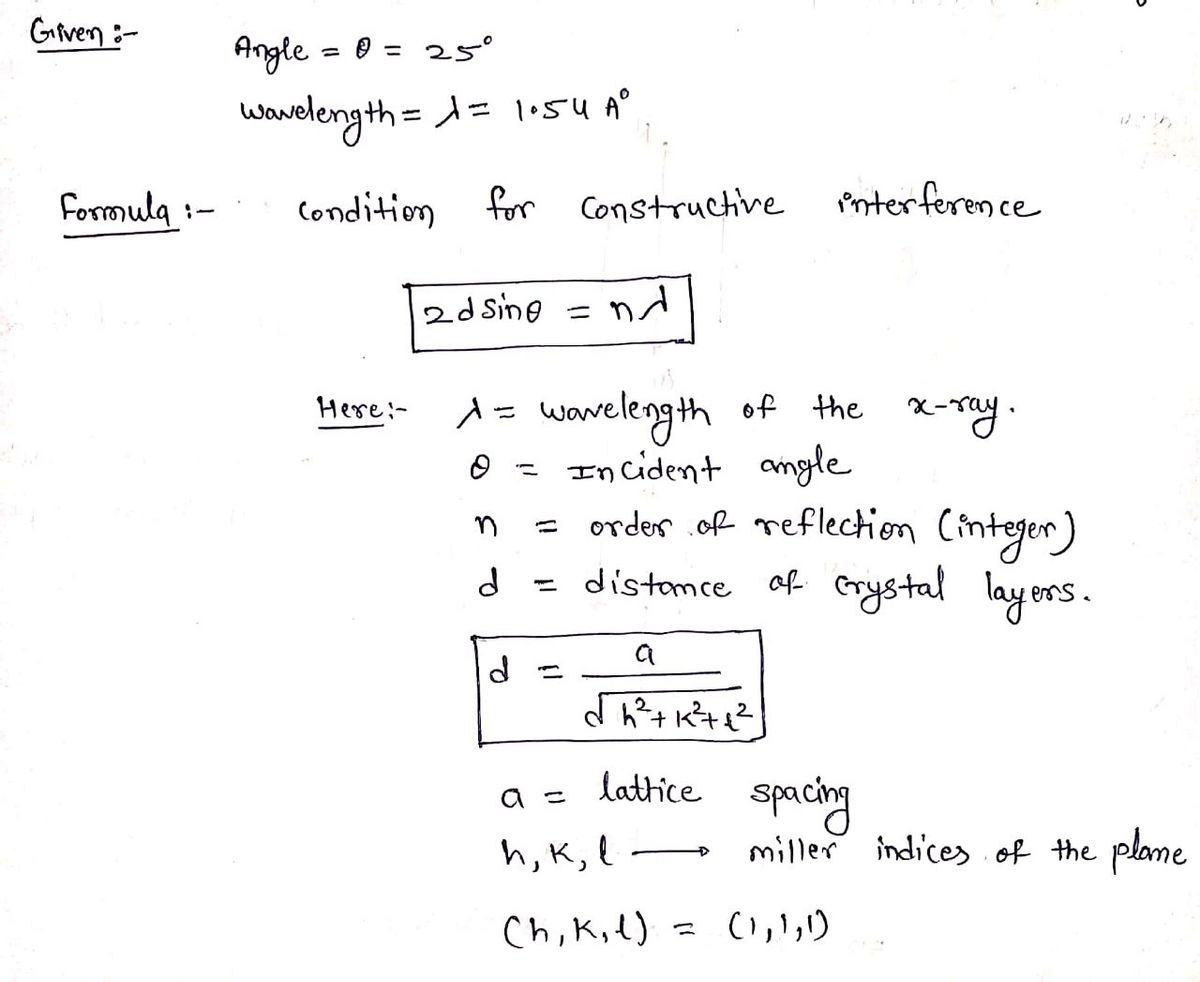 Given :-
Angle = θ = 25°
wavelength = λ = 1.54 A°
Formula :- condition for constructive interference
2d sinθ = nλ
Here:- λ = wavelength of the x-ray.
θ = Incident angle
n = order of reflection (integer)
d = distance of crystal layers.
d = a / √h²+k²+l²
a = lattice spacing
h, k, l → miller indices of the plane
(h, k, l) = (1,1,1)